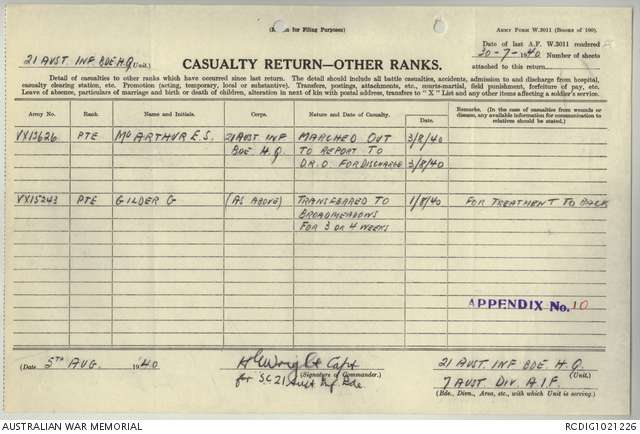 (Margin for Filing Purposes)
ARMY FORM W.3011 (BOOKS OF 100).
21 AUST. INF. BDE H.Q (Unit.)
Date of last A.F. W.3011 rendered
30-7-1940 Number of sheets
attached to this return
CASUALTY RETURN—OTHER RANKS.
Detail of casualties to other ranks which have occurred since last return. The detail should include all battle casualties, accidents, admission to and discharge from hospital,
casualty clearing station, etc. Promotion (acting, temporary, local or substantive). Transfers, postings, attachments, etc., courts-martial, field punishment, forfeiture of pay, etc.
Leave of absence, particulars of marriage and birth or death of children, alteration in next of kin with postal address, transfers to "X" List and any other items affecting a soldier's service.
Army No. Rank. Name and Initials. Corps. Nature and Date of Casualty. Date. Remarks. (In the case of casualties from wounds or disease, any information available for communication to relatives should be stated.)
VX15626 PTE McARTHUR E.S. 21 AUST INF MARCHED OUT 3/8/40
BDE H.Q. TO REPORT TO
D.R.O FOR DISCHARGE 3/8/40
VX15243 PTE GILDER G (AS ABOVE) TRANSFERRED TO 1/8/40 FOR TREATMENT TO BACK
BROADMEADOWS
FOR 3 OR 4 WEEKS
APPENDIX No. 10
(Date 5TH AUG. 1940
Capt
(Signature of Commander.)
for SC 21 Aust Inf. Bde
21 AUST. INF BDE H.Q.
(Unit.)
7 AUST. DIV. A.I.F.
(Bde., Divn., Area, etc., with which Unit is serving.)
AUSTRALIAN WAR MEMORIAL
RCDIG1021226